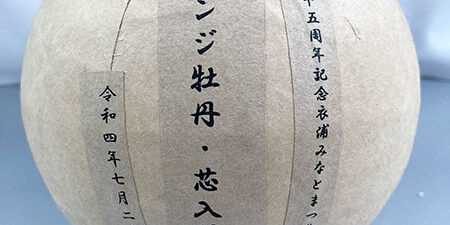 十五周年記念衣浦みなとまつ
ンジ牡丹・芯入
令和四年七月二